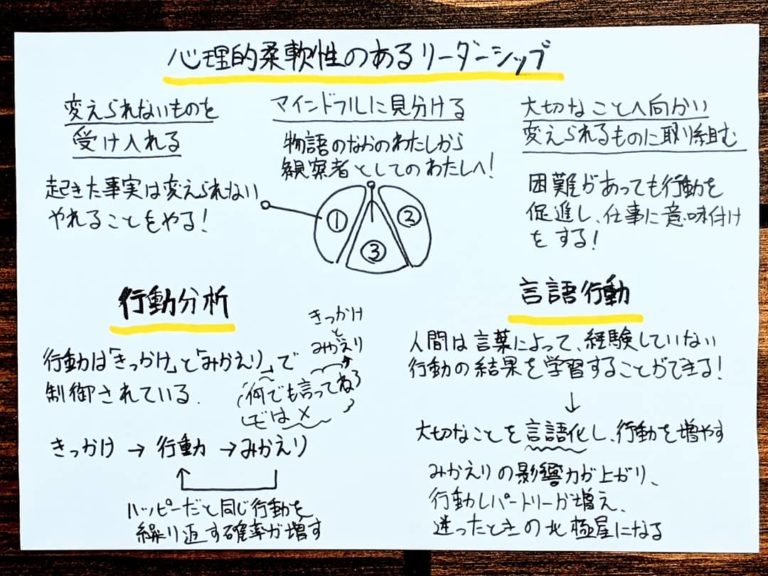 心理的柔軟性のあるリーダーシップ
変えられないものを
受け入れる
起きた事実は変えられない
やれることをやる!
マインドフルに見分ける
物語のなかのわたしから
観察者としてのわたしへ!
①
②
③
大切なことへ向かい
変えられるものに取り組む
困難があっても行動を
促進し、仕事に意味付け
をする!
行動分析
行動は「きっかけ」と「みかえり」で
制御されている。
きっかけ
と
みかえり
が
何でも言ってね
では×
きっかけ→行動→みかえり
ハッピーだと同じ行動を
繰り返す確率が増す
言語行動
人間は言葉によって、経験していない
行動の結果を学習することができる!
↓
大切なことを言語化し、行動を増やす
みかえりの影響力が上がり、
行動レパートリーが増え、
迷ったときの北極星になる